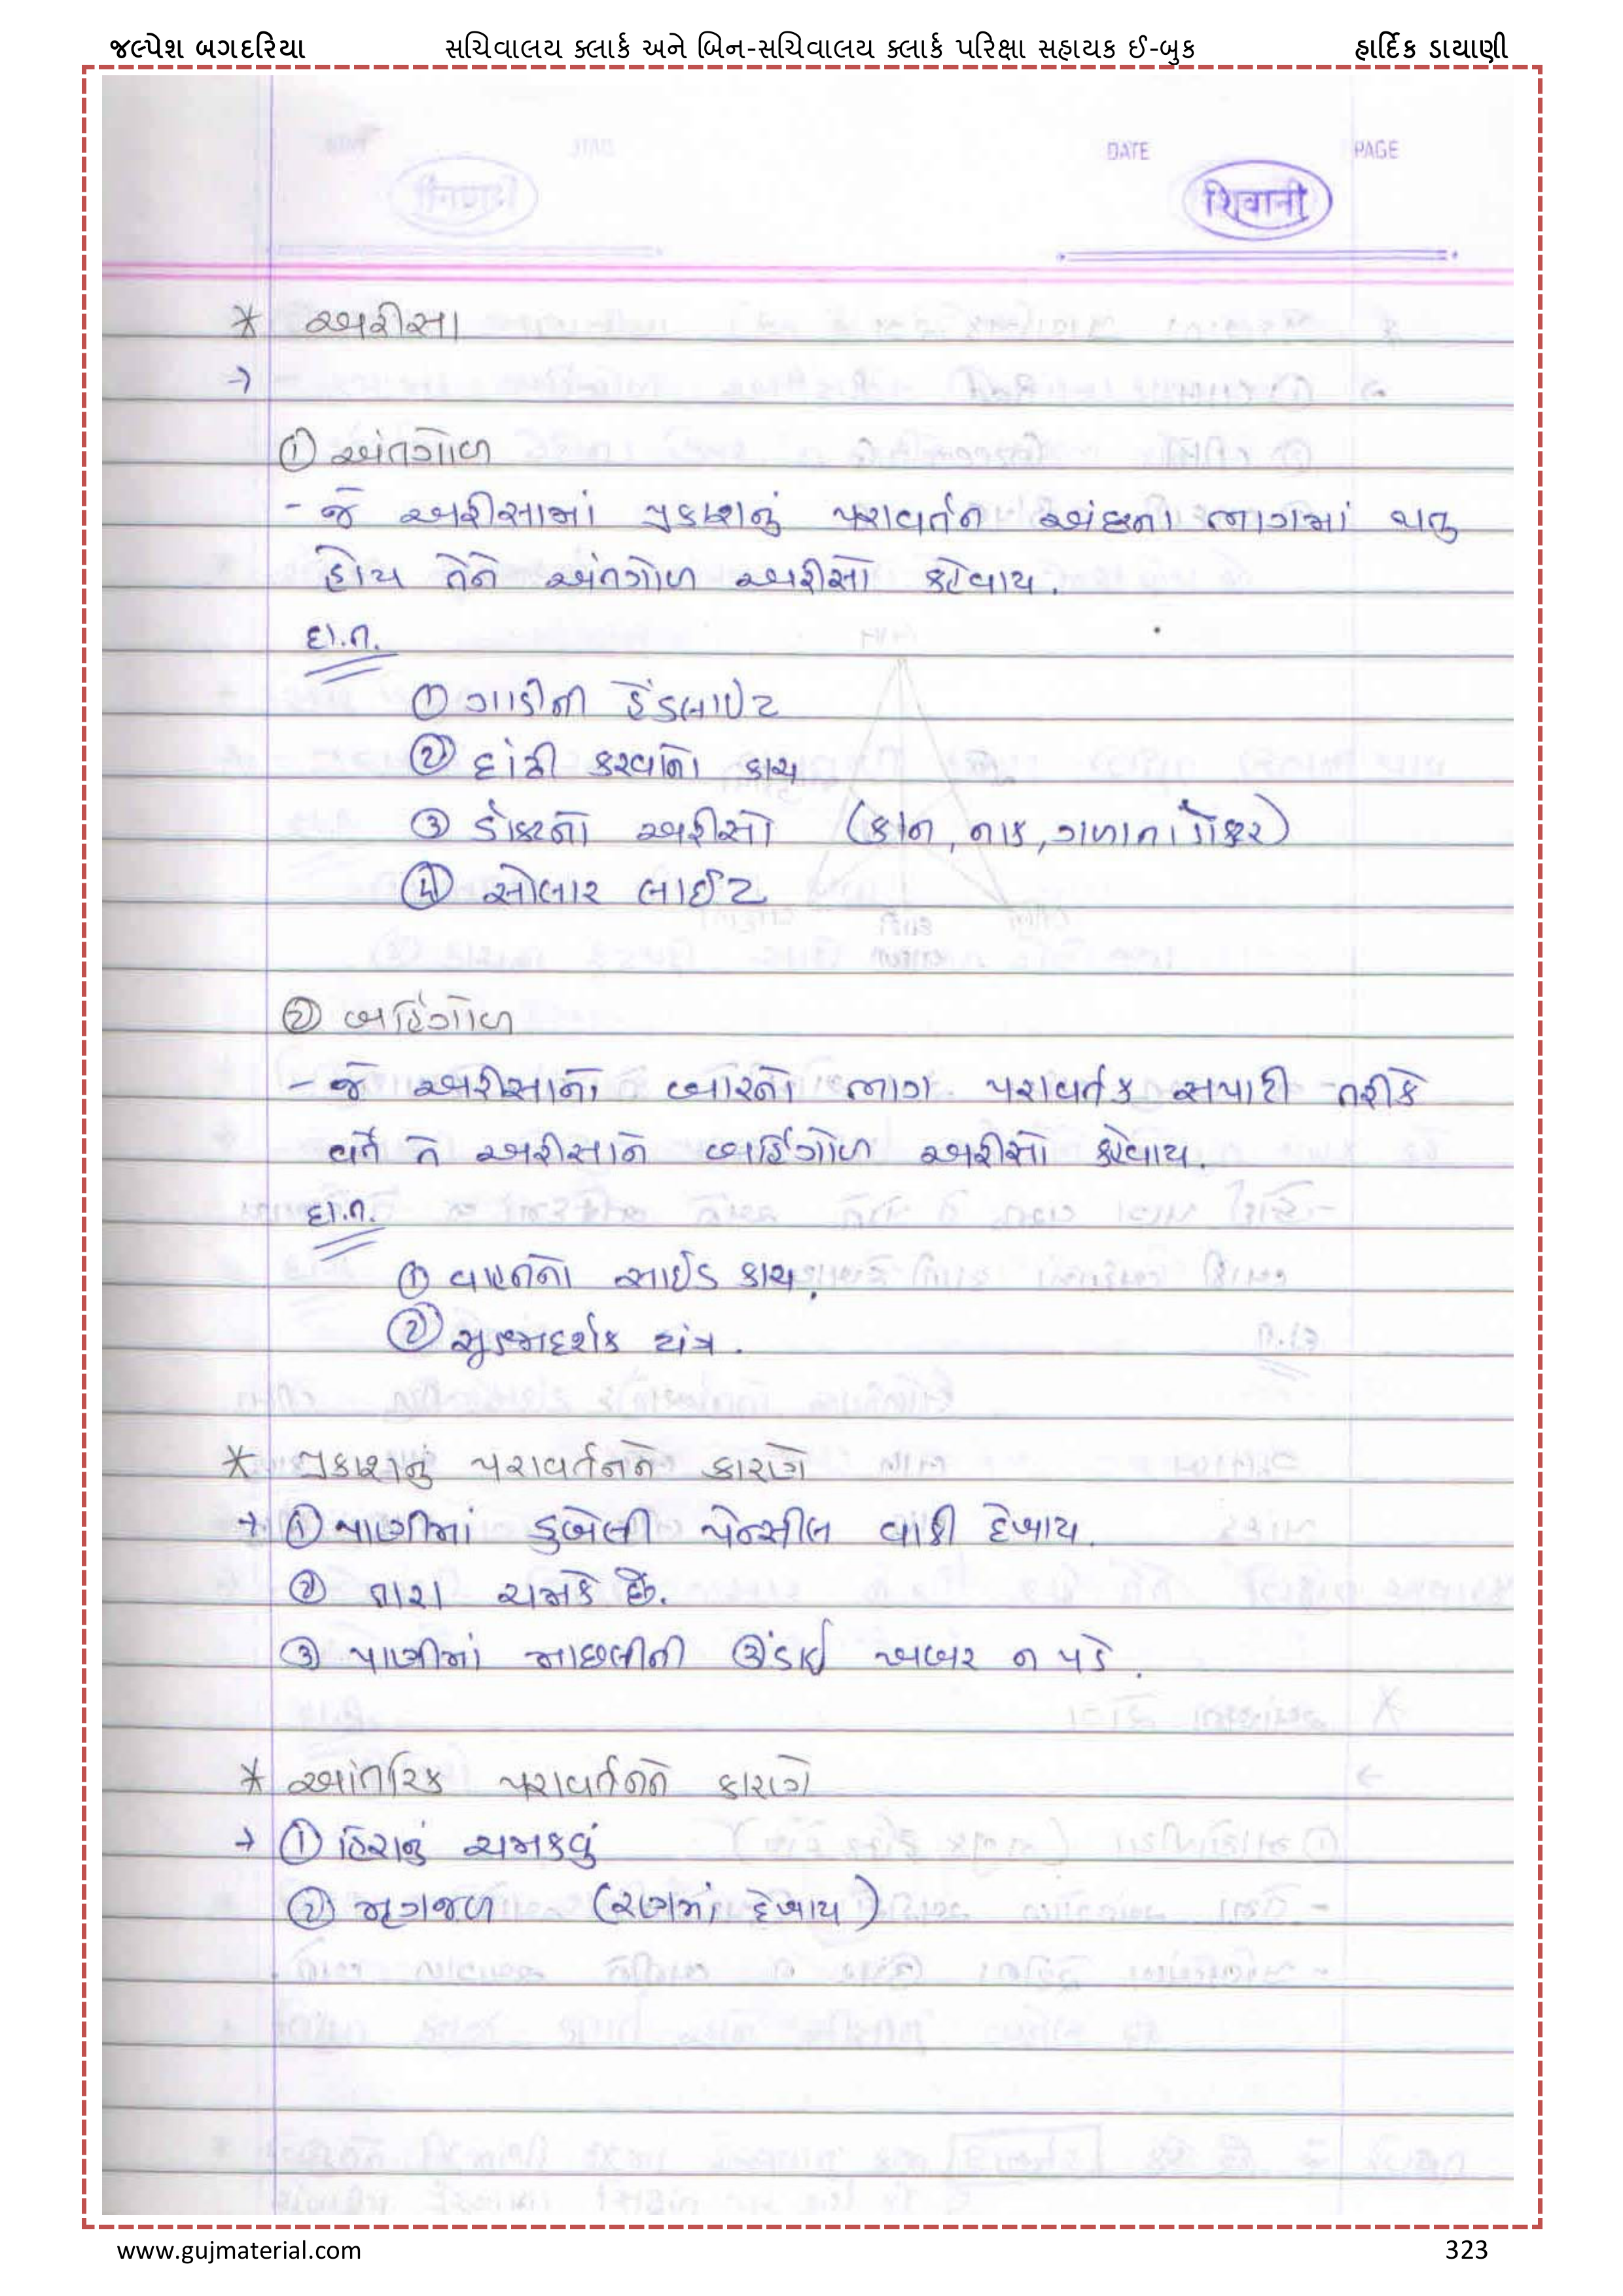 જલ્પેશ બગદરિયા સચિવાલય ક્લાર્ક અને બિન-સચિવાલય ક્લાર્ક પરિક્ષા સહાયક ઈ-બુક હાર્દિક ડાયાણી
DATE PAGE
शिवानी
* અરીસા
→
① અંતગોળ
- જે અરીસામાં પ્રકાશનું પરાવર્તન અંદરના ભાગમાં થતુ
હોય તેને અંતગોળ અરીસો કહેવાય.
દા.ત.
① ગાડીની હેડલાઈટ
② દાંઢી કરવાનો કાચ
③ ડોકટરનો અરીસો (કાન, નાક, ગળાના ડોકટર)
④ સોલાર લાઈટ
② બહિંગોળ
- જે અરીસાનો બારનો ભાગ પરાવર્તક સપાટી તરીકે
વર્તે તે અરીસાને બહિંગોળ અરીસો કહેવાય.
દા.ત.
① વાહનનો સાઈડ કાચ.
② સુક્ષ્મદર્શક યંત્ર.
* પ્રકાશનું પરાવર્તનને કારણે
→ ① પાણીમાં ડુબેલી પેન્સીલ વાકી દેખાય.
② તારા ચમકે છે.
③ પાણીમાં માછલીની ઊંડાઈ ખબર ન પડે.
* આંતરિક પરાવર્તનને કારણે
→ ① હિરાનું ચમકવું
② મૃગજળ (રણમાં દેખાય)
www.gujmaterial.com 323